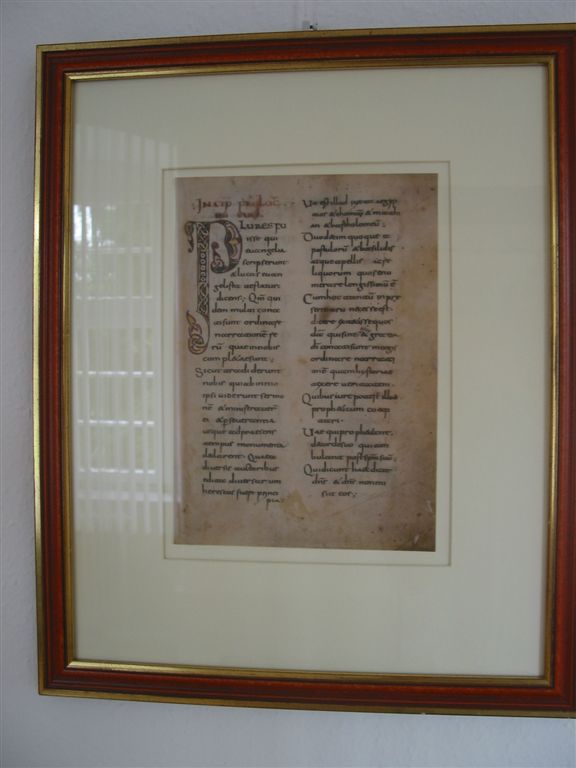 PLURES FU
isse qui
euangelia
scripserunt
& lucas euan
gelista testatur
dicens; Qm̄ qui
dem multi cona
ti sunt ordinare
narrationē re
rū quae in nobis
completae sunt;
Sicut tradiderunt
nobis qui ab initio
ipsi uiderunt sermo
nē & ministrauer̄
ei & perseuerantia
usque ad praesens
tempus monumenta
declarent Quae a
diuersis auctoribus
edita diuersarum
hereseon fuere princi
pia;
Ut est illud iuxta aegyp
tios & thomam & matthi
an & bartholomeū;
Duodecim quoque
apostolorū & basilidis
atque apellis ac re
liquorum quos enu
merare longissimū ē
Cum hoc tantū in prae
sentiarum necesse sit
dicere extitisse quos
dā qui sine sp̄u & gratia
dī conati sunt magis
ordinare narrationem
quam historiae
texere ueritatem
Quibus iure potest illud
propheticum coap
tari;
Uae qui prophetant
de corde suo qui am
bulant post sp̄m suū;
Qui dicunt haec dicit
dn̄s & dn̄s non mi
sit eos;